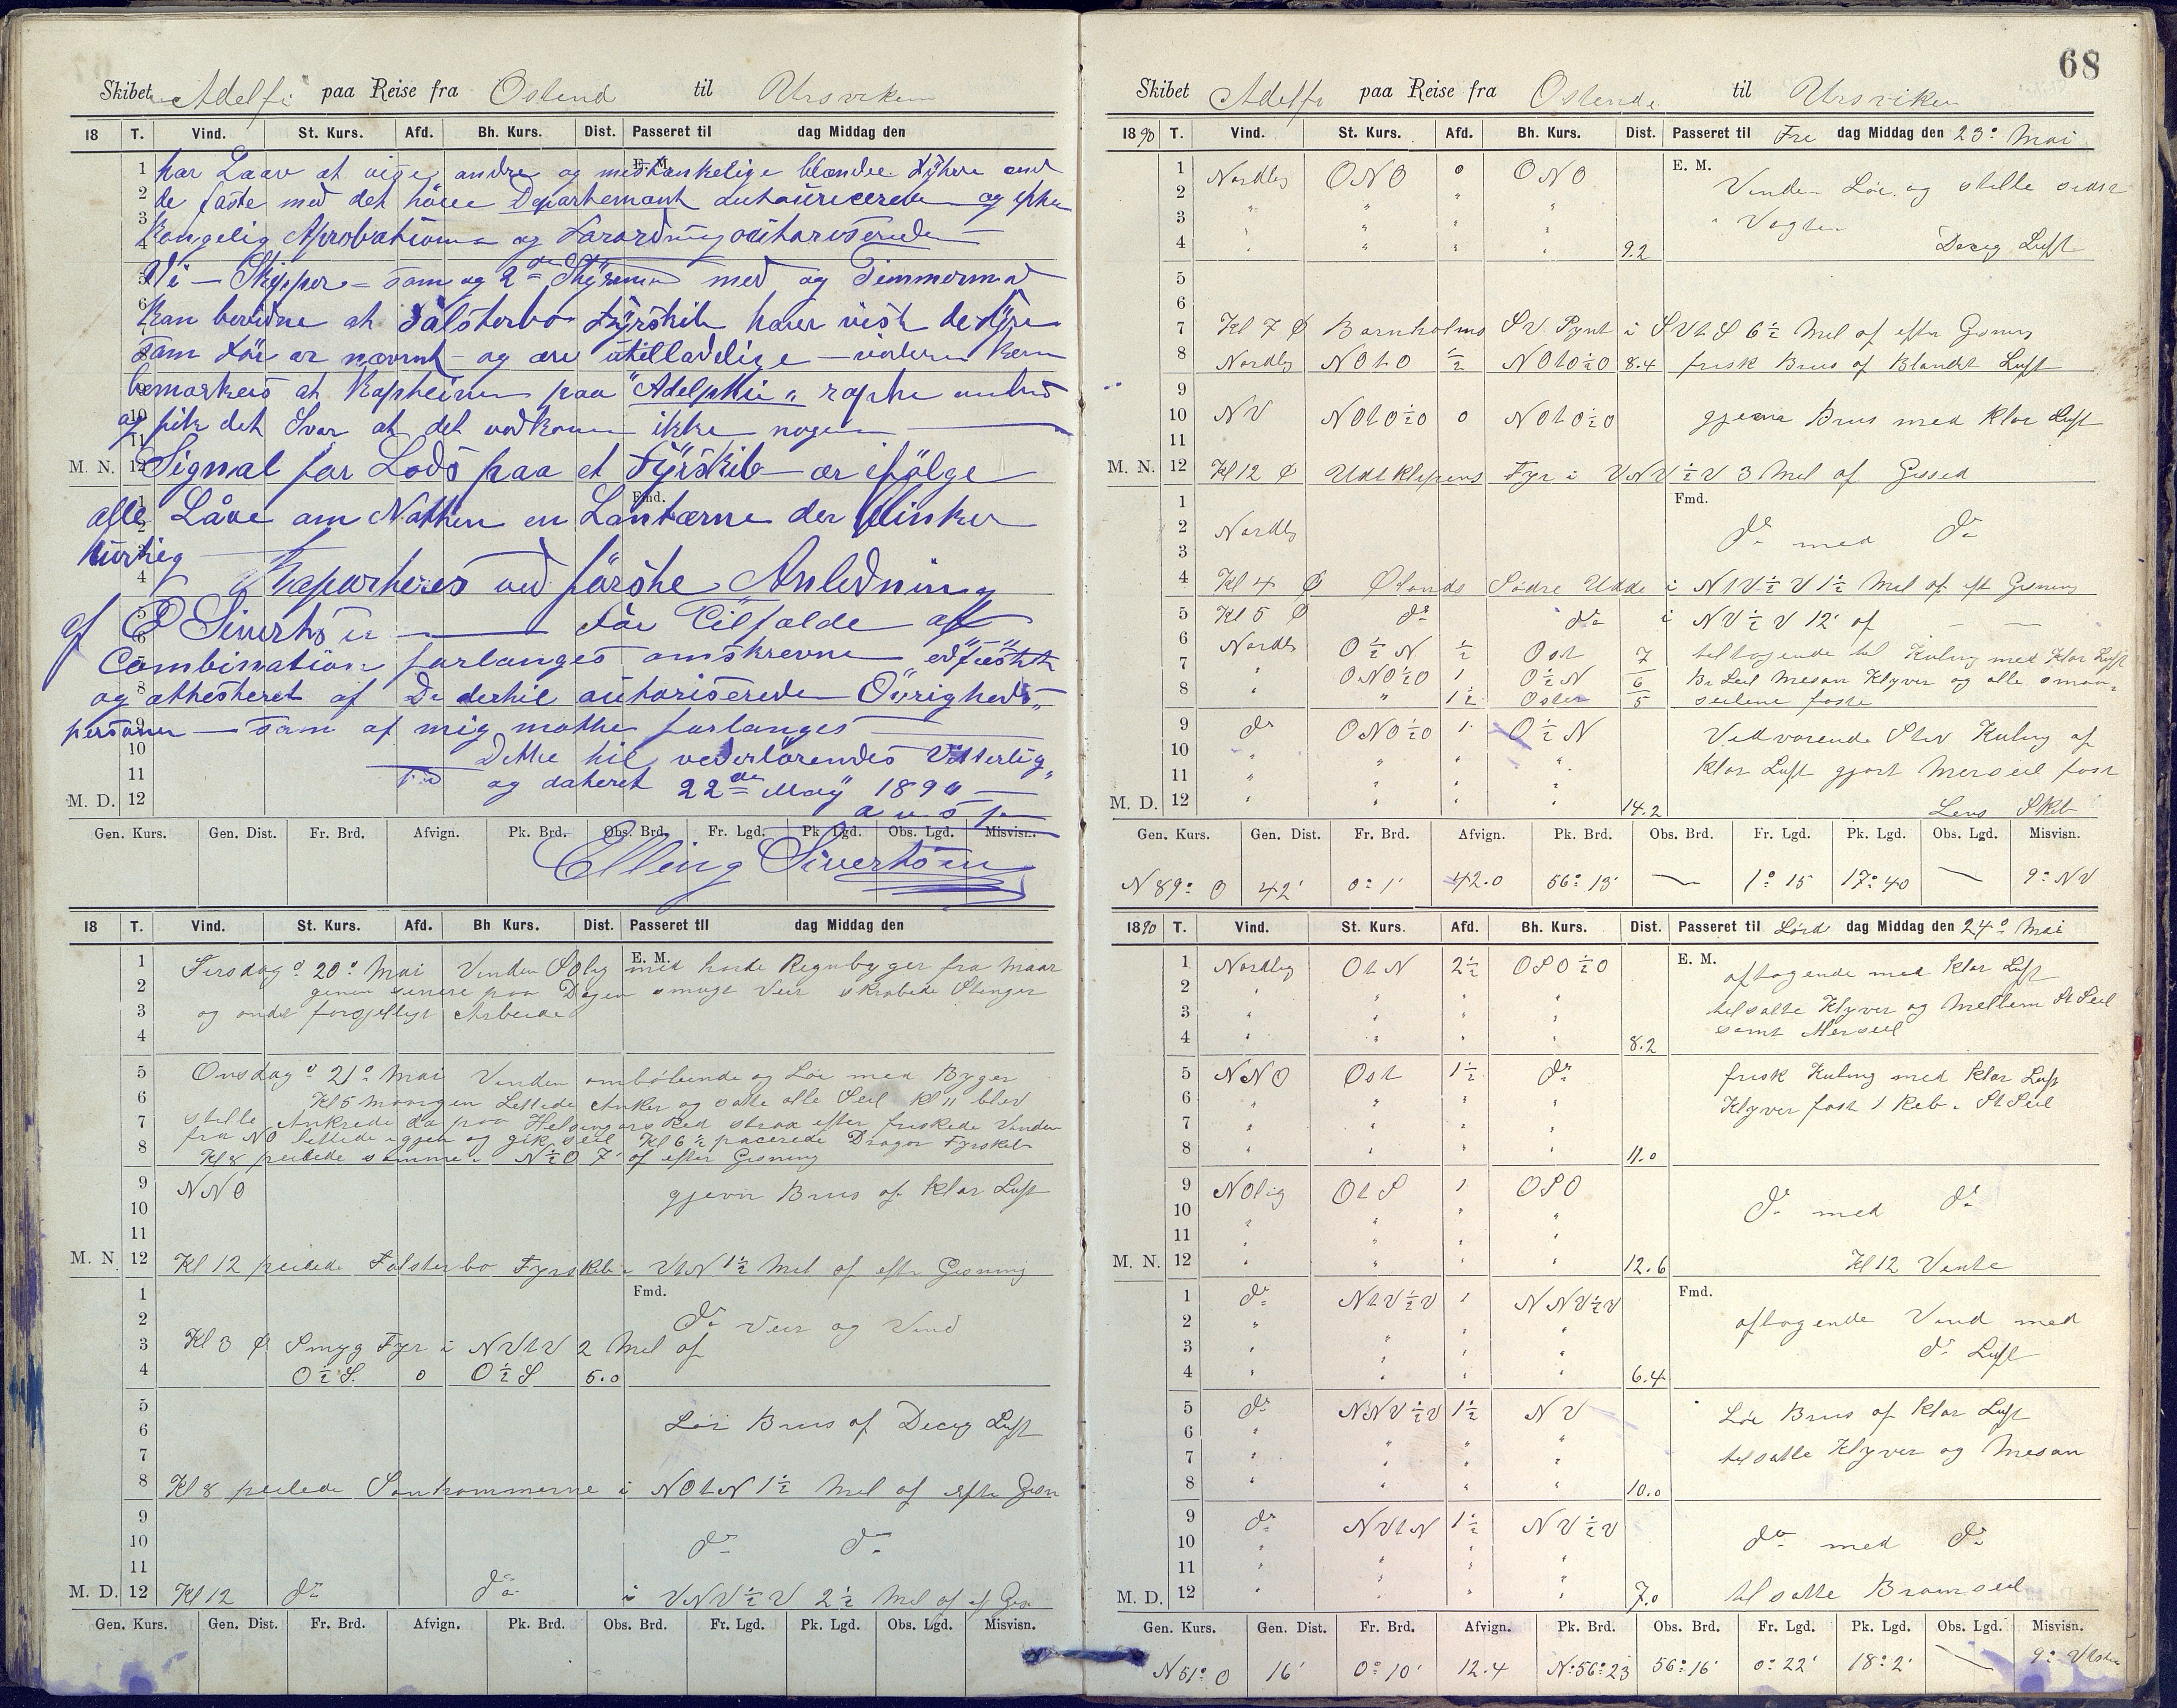 Skibet Adelfi paa Reise fra Ostend til Ursviken
18 T. Vind. St. Kurs. Afd. Bh. Kurs. Dist. Passeret til dag Middag den
E. M.
har Laav at vige andre og mistænkelige blandee Fyhre end
de faste med det höiee Departemant autoriicerede og efter
Kongelig Aprobation og Forordning
Vi – Skipper – som og 2den Styrmand med og Timmermand
Kan bevidne at Falsterbo Fyrskib haver vist de Fyre
som för er nævnt – og ere utilladelige – videren kan
bemærkes at Kapteinen paa "Adelphi" rapte ombord
og fik det Svar at det vedkom ikke nogen
M. N. 12 Signal for Lods paa et Fyrskib er efölge
Fmd.
alle Låve om Natten en Lantærne der blinker
hurtig
Raporteres ved förste Anledning
af E Sivertsen för Tilfælde af
Combination forlanges omskrevne
og attesteret af De dertil autoriserede Övrigheds-
personer – som af mig motte forlanges
Dette til vederlörendes Vitterlig-
hed og dateret 22de May 1890
M. D. 12
Gen. Kurs. Gen. Dist. Fr. Brd. Afvign. Pk. Brd. Obs. Brd. Fr. Lgd. Pk. Lgd. Obs. Lgd. Misvisn.
Elling Sivertsen
18 T. Vind. St. Kurs. Afd. Bh. Kurs. Dist. Passeret til dag Middag den
E. M.
Tirsdag d 20d Mai Vinden SOlig med harde Regnbyger fra Maar
genen senere paa Dagen smugt Veir skrabede Stenger
og andet forsjelligt Arbeide
Onsdag d 21d Mai Vinden omböbende og Löi med Byger
Kl 5 morgen Lettede Anker og satte alle Seil Kl 11 blev
stille Ankrede da paa Helsingörs Red strax efter friskede Vinden
fra NO lettede igjen og gik seil Kl 6 1/2 pacerede Dragor Fyrskib
Kl 8 peilede samme i N 1/2 O 7' af efter Gisning
9 NNO gjevn Brus af klar Luft
M. N. 12 Kl 12 peilede Falsterbo Fyrskib i VtN 1 1/2 Mil af efter Gisning
Fmd.
do Veir og Vind
3 Kl 3 ⌀ Smyg Fyr i NVtV 2 Mil af
4 O 1/2 S. 0 O 1/2 S 5.0
Löi Brus af Decig Luft
8 Kl 8 peilede Sanhammerne i NOtN 1 1/2 Mil af efter Gisn
do do
M. D. 12 Kl 12 do do i VNV 1/2 V 2 1/2 Mil af ef Gis
Gen. Kurs. Gen. Dist. Fr. Brd. Afvign. Pk. Brd. Obs. Brd. Fr. Lgd. Pk. Lgd. Obs. Lgd. Misvisn.
68
Skibet Adelfi paa Reise fra Ostende til Ursviken
1890 T. Vind. St. Kurs. Afd. Bh. Kurs. Dist. Passeret til Fre dag Middag den 23d Mai
E. M.
1 Nordlig ONO 0 ONO Vinden Löi og stille sidst
2 " " " "
3 " " " " i Vagten
4 " " " " 9.2 Decig Luft
5
6
7 Kl 7 ⌀ Bornholms SV Pynt i SVtS 6 1/2 Mil af efter Gisning
8 Nordlig NOtO 1/2 NOtO 1/2 O 8.4 frisk Brus af Blandet Luft
9
10 NV NOtO 1/2 O 0 NOtO 1/2 O gjevn Brus med Klar Luft
11
M. N. 12 Kl 12 ⌀ Udtklipens Fyr i VNV 1/2 V 3 Mil af Gissed
Fmd.
2 Nordlig do med do
4 Kl 4 ⌀ Ølands Södre Udde i NtV 1/2 V 1 1/2 Mil af eft Gisning
5 Kl 5 ⌀ do do i NV 1/2 V 12' af
6 Nordli O 1/2 N 1/2 Ost 7 tiltagende til Kuling med Klar Luft
7 " ONO 1/2 O 1 O 1/2 N 6 Br Seil Mesan Klyver og alle smaa-
8 " " 1 1/2 Osten 5 seilene faste
9 do ONO 1/2 O 1 O 1/2 N Vedvarende Stiv Kuling af
10 " " " " klar Luft gjort Merseil fast
11 " " " "
M. D. 12 " " " " 14.2 Lens Skib
Gen. Kurs. Gen. Dist. Fr. Brd. Afvign. Pk. Brd. Obs. Brd. Fr. Lgd. Pk. Lgd. Obs. Lgd. Misvisn.
N 89° O 42' 0° 1' 42.0 56° 13' — 1° 15 17° 40 — 9° NV
1890 T. Vind. St. Kurs. Afd. Bh. Kurs. Dist. Passeret til Lörd dag Middag den 24d Mai
E. M.
1 Nordlig OtN 2 1/2 OSO 1/2 O aftagende med klar Luft
2 " " " " tilsatte Klyver og Mellem St Seil
3 " " " " samt Merseil
4 " " " " 8.2
5 NNO Ost 1 1/2 do frisk Kuling med klar Luft
6 " " " " Klyver fast 1 Reb i St Seil
7 " " " "
8 " " " " 11.0
9 NOlig OtS 1 OSO
10 " " " " do med do
11 " " "
M. N. 12 " " " " 12.6 Kl 12 Vente
Fmd.
1 do NtV 1/2 V 1 NNV 1/2 V
2 " " " " aftagende Vind med
3 " " " " do Luft
4 " " " " 6.4
5 do NNV 1/2 V 1 1/2 NV Löi Brus af klar Luft
6 " " " "
7 " " " " tilsatte Klyver og Mesan
8 " " " " 10.0
9 do NVtN 1 1/2 NV 1/2 V
10 " " " " do med do
11 " " " "
M. D. 12 " " " " 7.0 tilsatte Bramseil
Gen. Kurs. Gen. Dist. Fr. Brd. Afvign. Pk. Brd. Obs. Brd. Fr. Lgd. Pk. Lgd. Obs. Lgd. Misvisn.
N 51° O 16' 0° 10' 12.4 N° 56° 23 56° 16' 0° 22' 18° 2' — 9°